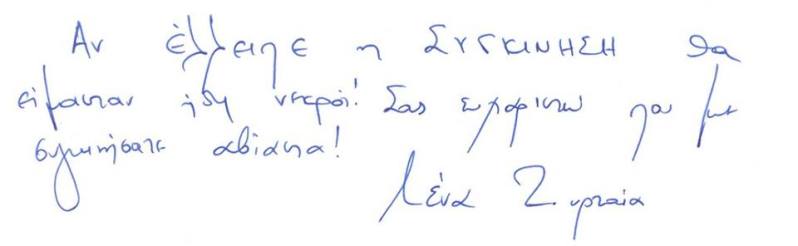 Αν έλλειπε η ΣΥΓΚΙΝΗΣΗ θα
είμασταν ήδη νεκροί! Σας ευχαριστώ που με
συγκινήσατε αβίαστα!
Λένα